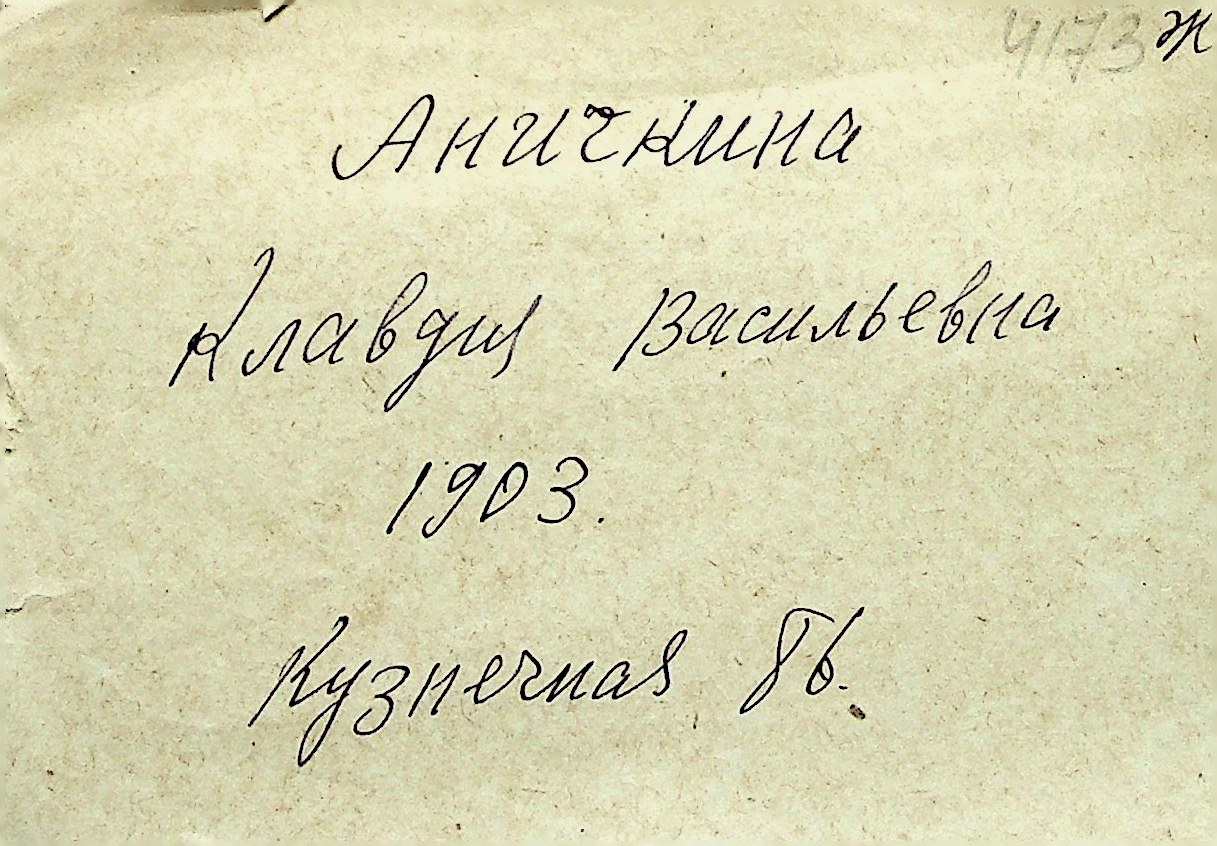 4173 ж
Аничкина
Клавдия Васильевна
1903.
Кузнечная 86.